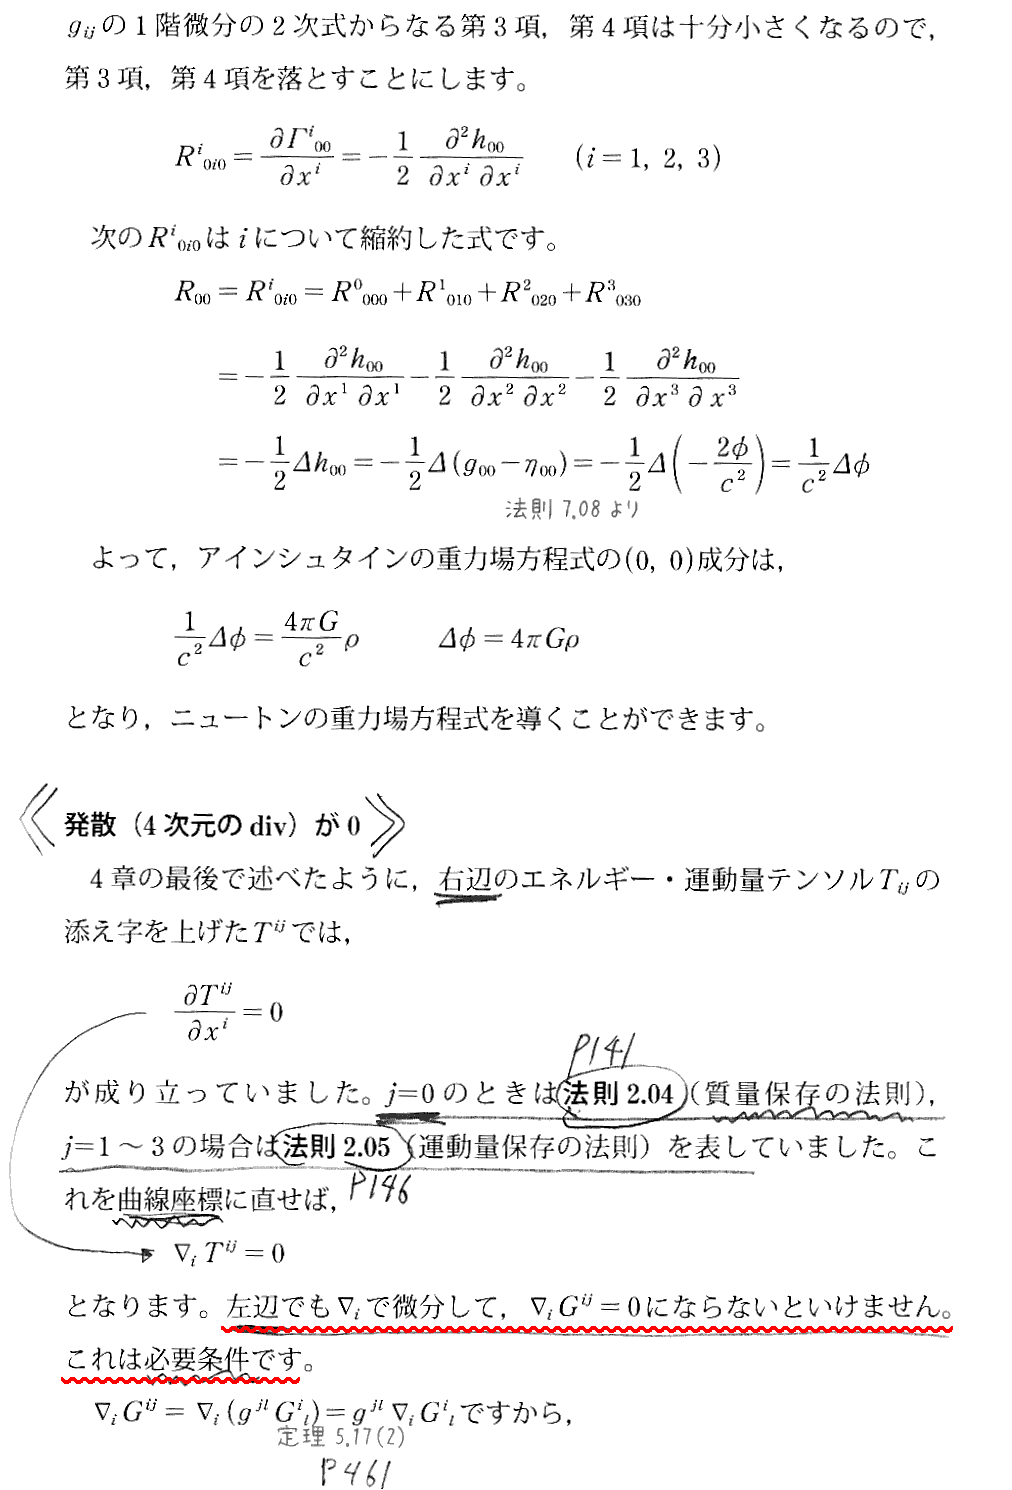 g_{ij}の1階微分の2次式からなる第3項，第4項は十分小さくなるので，
第3項，第4項を落とすことにします。
R^i_{0i0} = ∂Γ^i_{00}/∂x^i = −1/2 ∂²h_{00}/∂x^i ∂x^i (i = 1, 2, 3)
次のR^i_{0i0}はiについて縮約した式です。
R_{00} = R^i_{0i0} = R^0_{000} + R^1_{010} + R^2_{020} + R^3_{030}
= −1/2 ∂²h_{00}/∂x^1 ∂x^1 − 1/2 ∂²h_{00}/∂x^2 ∂x^2 − 1/2 ∂²h_{00}/∂x^3 ∂x^3
= −1/2 Δh_{00} = −1/2 Δ(g_{00} − η_{00}) = −1/2 Δ(−2φ/c²) = 1/c² Δφ
法則 7.08 より
よって，アインシュタインの重力場方程式の(0, 0)成分は，
1/c² Δφ = 4πG/c² ρ Δφ = 4πGρ
となり，ニュートンの重力場方程式を導くことができます。
《発散（4次元のdiv）が0》
4章の最後で述べたように，右辺のエネルギー・運動量テンソルT_{ij}の
添え字を上げたT^{ij}では，
∂T^{ij}/∂x^i = 0
P141
が成り立っていました。j=0のときは法則 2.04（質量保存の法則），
j=1～3の場合は法則 2.05（運動量保存の法則）を表していました。こ
れを曲線座標に直せば，
P146
∇_i T^{ij} = 0
となります。左辺でも∇_iで微分して，∇_i G^{ij} = 0にならないといけません。
これは必要条件です。
∇_i G^{ij} = ∇_i (g^{jl} G^i_l) = g^{jl} ∇_i G^i_l ですから，
定理 5.17(2)
P461